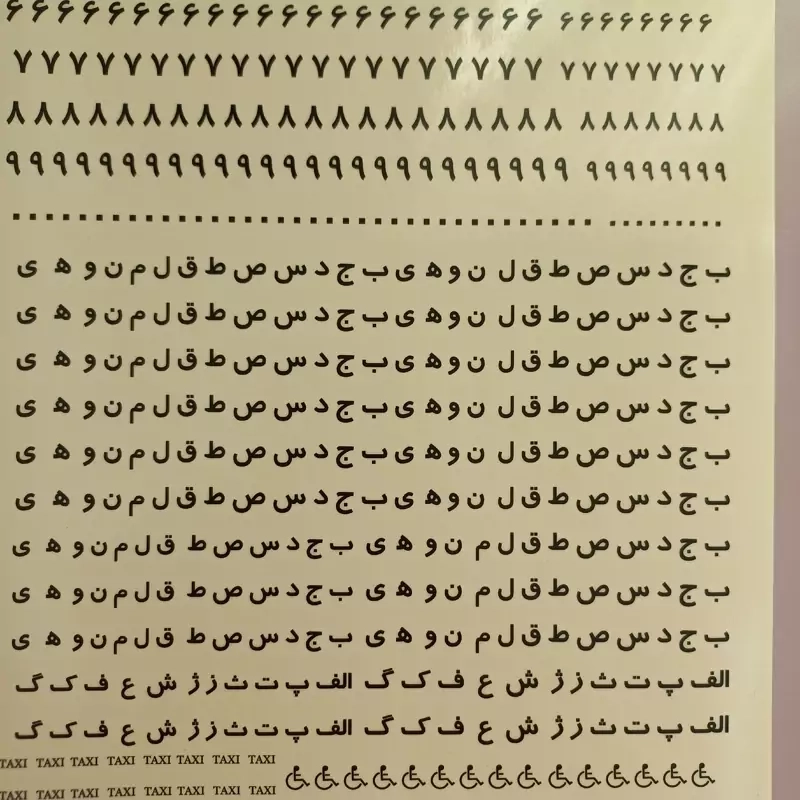 ۶ ۶ ۶ ۶ ۶ ۶ ۶ ۶ ۶ ۶ ۶ ۶ ۶ ۶ ۶ ۶ ۶ ۶ ۶ ۶ ۶ ۶ ۶ ۶ ۶ ۶ ۶ ۶ ۶ ۶
۷ ۷ ۷ ۷ ۷ ۷ ۷ ۷ ۷ ۷ ۷ ۷ ۷ ۷ ۷ ۷ ۷ ۷ ۷ ۷ ۷ ۷ ۷ ۷ ۷ ۷ ۷ ۷
۸ ۸ ۸ ۸ ۸ ۸ ۸ ۸ ۸ ۸ ۸ ۸ ۸ ۸ ۸ ۸ ۸ ۸ ۸ ۸ ۸ ۸ ۸ ۸ ۸ ۸ ۸ ۸
۹ ۹ ۹ ۹ ۹ ۹ ۹ ۹ ۹ ۹ ۹ ۹ ۹ ۹ ۹ ۹ ۹ ۹ ۹ ۹ ۹ ۹ ۹ ۹ ۹ ۹ ۹ ۹ ۹ ۹ ۹ ۹ ۹
ب ج د س ص ط ق ل ن و ه ی ب ج د س ص ط ق ل م ن و ه ی
ب ج د س ص ط ق ل ن و ه ی ب ج د س ص ط ق ل م ن و ه ی
ب ج د س ص ط ق ل ن و ه ی ب ج د س ص ط ق ل م ن و ه ی
ب ج د س ص ط ق ل ن و ه ی ب ج د س ص ط ق ل م ن و ه ی
ب ج د س ص ط ق ل ن و ه ی ب ج د س ص ط ق ل م ن و ه ی
ب ج د س ص ط ق ل ن و ه ی ب ج د س ص ط ق ل م ن و ه ی
ب ج د س ص ط ق ل م ن و ه ی ب ج د س ص ط ق ل م ن و ه ی
ب ج د س ص ط ق ل م ن و ه ی ب ج د س ص ط ق ل م ن و ه ی
ب ج د س ص ط ق ل م ن و ه ی ب ج د س ص ط ق ل م ن و ه ی
الف پ ت ث ز ژ ش ع ف ک گ الف پ ت ث ز ژ ش ع ف ک گ
الف پ ت ث ز ژ ش ع ف ک گ الف پ ت ث ز ژ ش ع ف ک گ
TAXI TAXI TAXI TAXI TAXI TAXI TAXI TAXI
TAXI TAXI TAXI TAXI TAXI TAXI TAXI TAXI